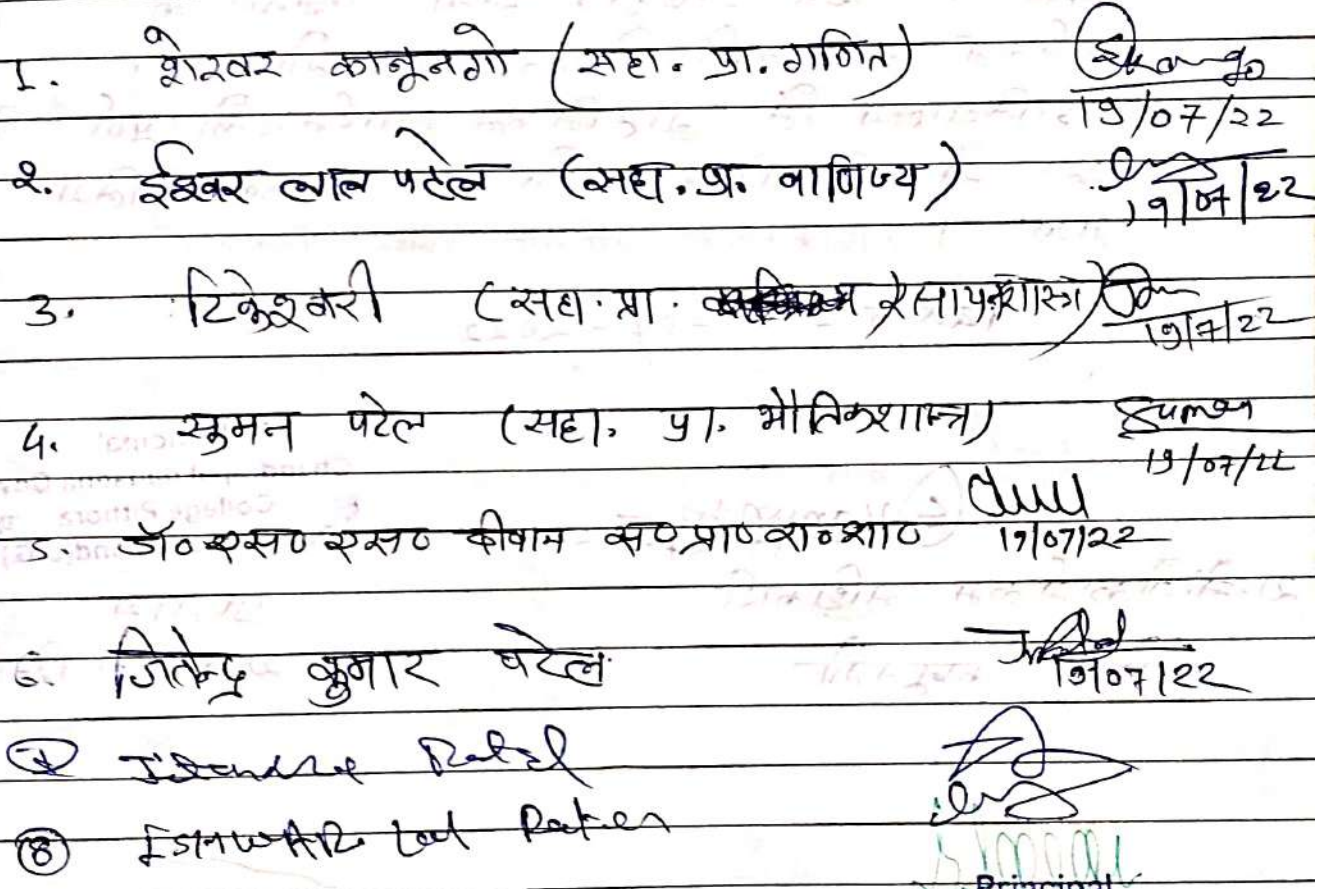 1. शेखर कानूनगो (सहा. प्रा. गणित)
19/07/22
२. ईश्वर लाल पटेल (सहा. प्रा. वाणिज्य)
19/07/22
3. टिकेश्वरी (सहा. प्रा. रसायनशास्त्र)
19/7/22
4. सुमन पटेल (सहा. प्रा. भौतिकशास्त्र) Suman
19/07/22
5. डॉ० एस० एस० दीवान स० प्रा० रा० शा० 19/07/22
6. जितेन्द्र कुमार पटेल 19/07/22
⑦ Jitendra Patel
⑧ ISHWAR Lal Patel
Principal